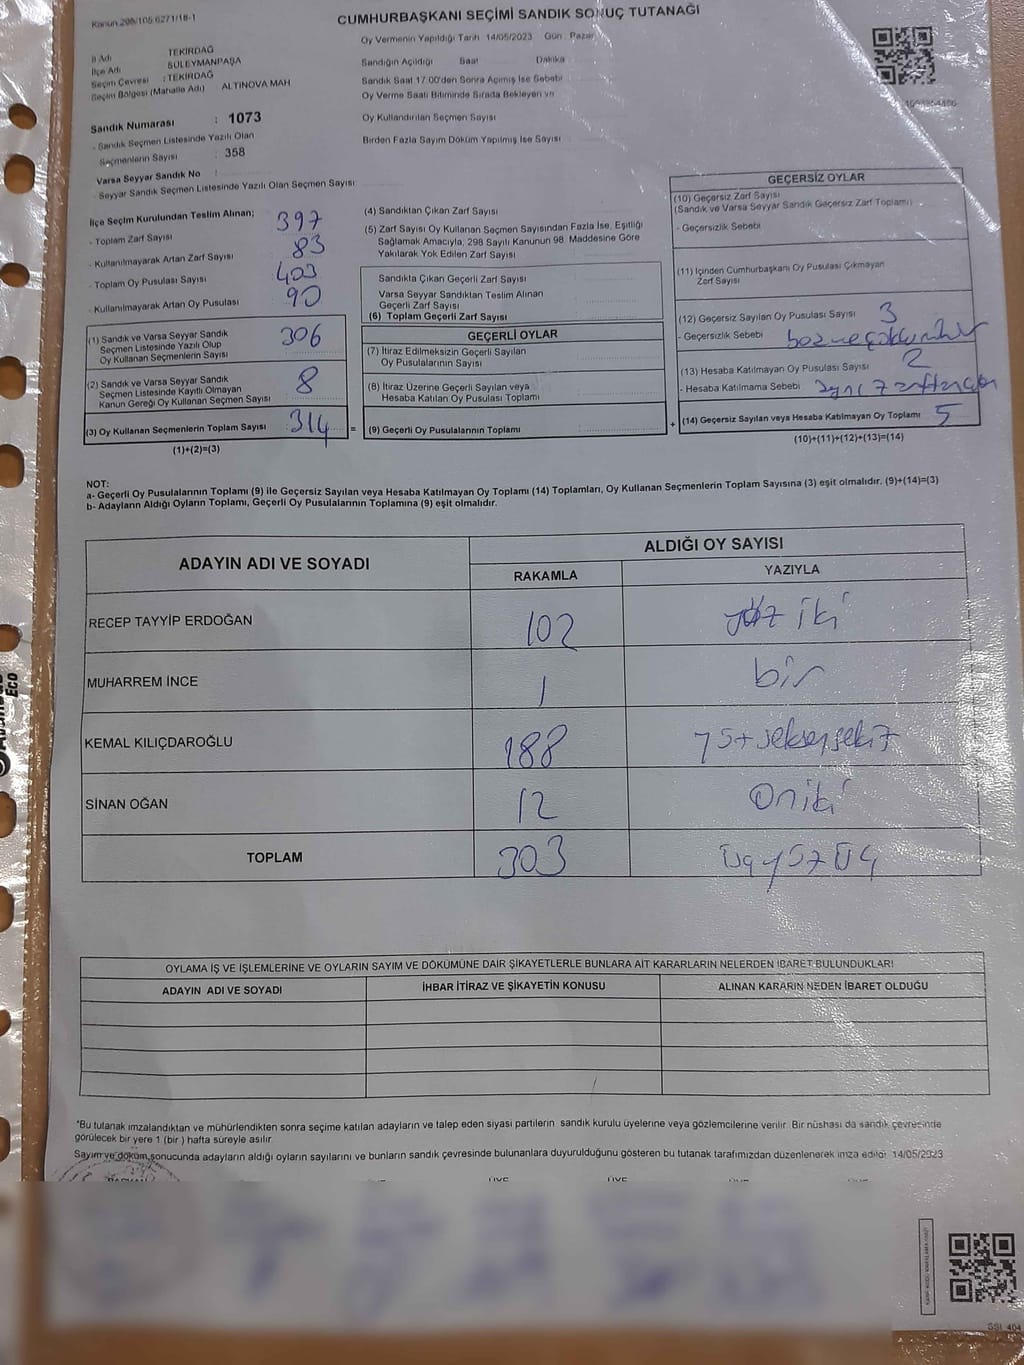 Kanun 298/105 6271/18-1
CUMHURBAŞKANI SEÇİMİ SANDIK SONUÇ TUTANAĞI
Oy Vermenin Yapıldığı Tarih 14/05/2023 Gün: Pazar
İl Adı TEKİRDAĞ
İlçe Adı SÜLEYMANPAŞA
Seçim Çevresi : TEKİRDAĞ
Seçim Bölgesi (Mahalle Adı) ALTINOVA MAH
Sandığın Açıldığı Saat Dakika
Sandık Saat 17:00'den Sonra Açımış İse Sebebi
Oy Verme Saati Bitiminde Sırada Bekleyen ve
Oy Kullandırılan Seçmen Sayısı
Birden Fazla Sayım Döküm Yapılmış İse Sayısı
Sandık Numarası : 1073
- Sandık Seçmen Listesinde Yazılı Olan
Seçmenlerin Sayısı : 358
Varsa Seyyar Sandık No :
- Seyyar Sandık Seçmen Listesinde Yazılı Olan Seçmen Sayısı
İlçe Seçim Kurulundan Teslim Alınan;
- Toplam Zarf Sayısı 397
- Kullanılmayarak Artan Zarf Sayısı 83
- Toplam Oy Pusulası Sayısı 403
- Kullanılmayarak Artan Oy Pusulası 90
(1) Sandık ve Varsa Seyyar Sandık
Seçmen Listesinde Yazılı Olup
Oy Kullanan Seçmenlerin Sayısı 306
(2) Sandık ve Varsa Seyyar Sandık
Seçmen Listesinde Kayıtlı Olmayan
Kanun Gereği Oy Kullanan Seçmen Sayısı 8
(3) Oy Kullanan Seçmenlerin Toplam Sayısı : 314 =
(1)+(2)=(3)
(4) Sandıktan Çıkan Zarf Sayısı
(5) Zarf Sayısı Oy Kullanan Seçmen Sayısından Fazla İse, Eşitliği
Sağlamak Amacıyla, 298 Sayılı Kanunun 98. Maddesine Göre
Yakılarak Yok Edilen Zarf Sayısı
Sandıkta Çıkan Geçerli Zarf Sayısı
Varsa Seyyar Sandıktan Teslim Alınan
Geçerli Zarf Sayısı
(6) Toplam Geçerli Zarf Sayısı
GEÇERLİ OYLAR
(7) İtiraz Edilmeksizin Geçerli Sayılan
Oy Pusulalarının Sayısı
(8) İtiraz Üzerine Geçerli Sayılan veya
Hesaba Katılan Oy Pusulası Toplamı
(9) Geçerli Oy Pusulalarının Toplamı +
GEÇERSİZ OYLAR
(10) Geçersiz Zarf Sayısı
(Sandık ve Varsa Seyyar Sandık Geçersiz Zarf Toplamı)
- Geçersizlik Sebebi
(11) İçinden Cumhurbaşkanı Oy Pusulası Çıkmayan
Zarf Sayısı
(12) Geçersiz Sayılan Oy Pusulası Sayısı 3
- Geçersizlik Sebebi
(13) Hesaba Katılmayan Oy Pusulası Sayısı 2
- Hesaba Katılmama Sebebi aynı zarftan çıkan
(14) Geçersiz Sayılan veya Hesaba Katılmayan Oy Toplamı 5
(10)+(11)+(12)+(13)=(14)
NOT:
a- Geçerli Oy Pusulalarının Toplamı (9) ile Geçersiz Sayılan veya Hesaba Katılmayan Oy Toplamı (14) Toplamları, Oy Kullanan Seçmenlerin Toplam Sayısına (3) eşit olmalıdır. (9)+(14)=(3)
b- Adayların Aldığı Oyların Toplamı, Geçerli Oy Pusulalarının Toplamına (9) eşit olmalıdır.
ADAYIN ADI VE SOYADI
ALDIĞI OY SAYISI
RAKAMLA YAZIYLA
RECEP TAYYİP ERDOĞAN 102 yüz iki
MUHARREM İNCE 1 bir
KEMAL KILIÇDAROĞLU 188 yüzseksensekiz
SİNAN OĞAN 12 Oniki
TOPLAM 303 Üçyüzüç
OYLAMA İŞ VE İŞLEMLERİNE VE OYLARIN SAYIM VE DÖKÜMÜNE DAİR ŞİKAYETLERLE BUNLARA AİT KARARLARIN NELERDEN İBARET BULUNDUKLARI
ADAYIN ADI VE SOYADI İHBAR İTİRAZ VE ŞİKAYETİN KONUSU ALINAN KARARIN NEDEN İBARET OLDUĞU
*Bu tutanak imzalandıktan ve mühürlendikten sonra seçime katılan adayların ve talep eden siyasi partilerin sandık kurulu üyelerine veya gözlemcilerine verilir. Bir nüshası da sandık çevresinde
görülecek bir yere 1 (bir) hafta süreyle asılır.
Sayım ve döküm sonucunda adayların aldığı oyların sayılarını ve bunların sandık çevresinde bulunanlara duyurulduğunu gösteren bu tutanak tarafımızdan düzenlenerek imza edildi 14/05/2023
BAŞKAN ÜYE ÜYE ÜYE ÜYE
SSI 404
Eco